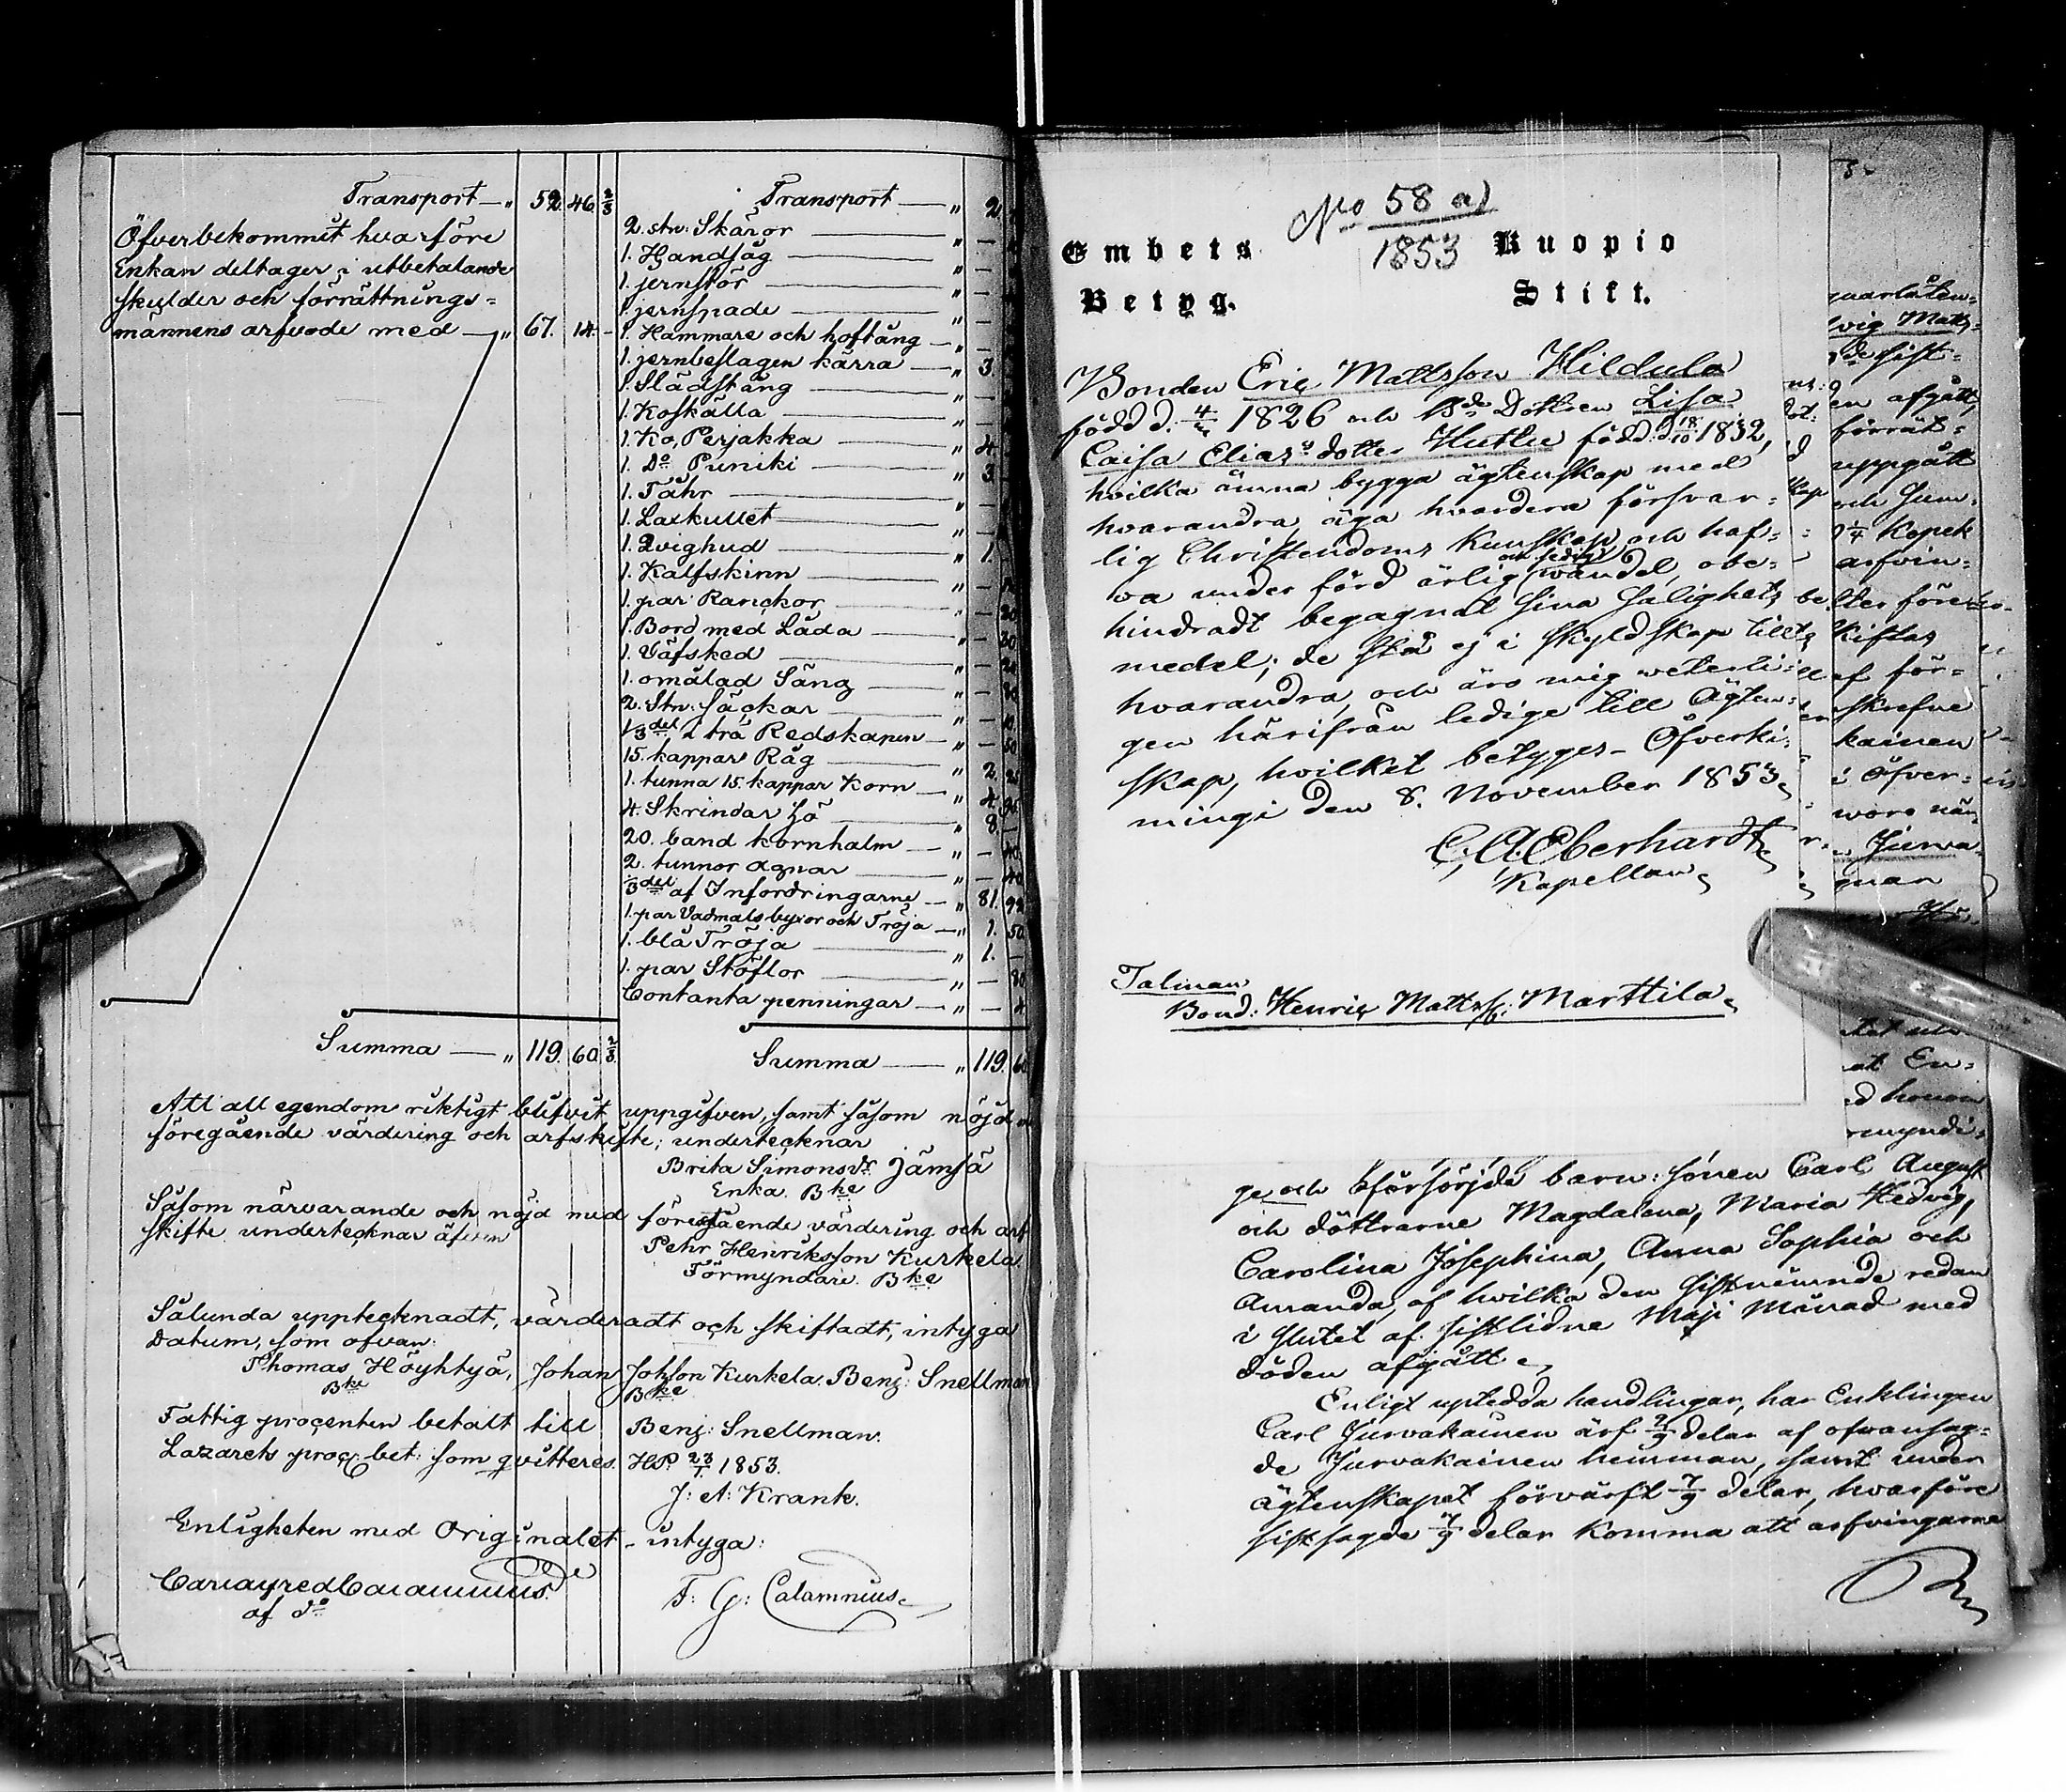 Transport — „ 52. 46. 2/3
Öfverbekommit hvarföre
Enkan deltager i utbetalande
skulder och förrättnings-
männens arfvode med — „ 67. 14. -
Summa — „ 119. 60. 2/3
Transport — „ 2.
2. stn: Skäror — „ —
1. Handsåg — „ —
1. jernstör — „ —
1. jernspade — „ —
1. Hammare och hoftång — „ —
1. jernbeslagen kärra — „ 3.
1. Slädstång — „ —
1. Koskälla — „ —
1. Ko, Perjakka — „ 4.
1. Do Puniki — „ 3.
1. Tåhr — „ —
1. Laxkullet — „ —
1. Qvighud — „ 1.
1. Kalfskinn — „ —
1. par Ranckor — „ — 20
1. Bord med Låda — „ — 30
1. Väfsked — „ — 20
1. omålad Säng — „ — 80
2. Stn: Säckar — „ — 10
1/3 del i trä Redskapen — „ — 50
15. kappar Råg — „ 2. 25
1. tunna 15. kappar Korn — „ 4.
4. Skrindar hö — „ 8. —
20. band kornhalm — „ — 40
2. tunnor agnar — „ — 40
1/3 del af Infordringarne — „ 81. 99
1. par Vadmals byxor och Tröja — „ 1. 50
1. blå Tröja — „ 1. —
1. par Stöflor — „ — 80
Contanta penningar — „ —
Summa — „ 119. 60
Att all egendom riktigt blifvit uppgifven, samt såsom nöjd
föregående värdering och arfskifte; undertecknar
Brita Simonsdr Jämsä
Enka. Bke
Såsom närvarande och nöjd med föregående värdering och arf
skifte undertecknar äfven
Pehr Henriksson Kurkela
Förmyndare. Bke
Sålunda upptecknadt, värderadt och skiftadt, intyga
Datum, som ofvan:
Thomas Höyhtyä, Johan Johsson Kurkela. Benj: Snellman
Bke Bke
Fattig procenten betalt till Benj: Snellman.
Lazarets proc: bet: som qvitteres. HP. 23/1 1853.
J: A: Krank.
Enligheten med Originalet - intyga:
F: G: Calamnius
af do
No 58 a)
1853
Embets Kuopio
Betyg. Stift.
Bonden Eric Mattsson Hildula
född d. 4/ 1826 och Bde Dottren Lisa
Caisa Elias dotter Huttu född d. 18/10 1832,
hvilka ämna bygga ägtenskap med
hvarandra, äga hvardera försvar-
lig Christendoms Kunskap och haf-
va under förd ärlig och sedig wandel, obe-
hindradt begagnat sina Salighets
medel; de stå ej i Skyldskap till
hvarandra, och äro mig veterli-
gen härifrån ledige till Ägten-
skap, hvilket betyges - Öfverki-
mingi den 8. November 1853.
C. A. Eberhardt
Kapellan
Talman
Bond: Henric Mattss: Marttila
qvarlåten-
lvig Matts-
en afgått,
förrät-
uppgått
och Sum-
1/4 Kopek
arfvin-
lter före
kiftas
af för-
skrefne
kainen
i Öfver-
woro när
Jurva-
at En-
ed honom
rmyndi-
ge och oförsörjda barn: sönen Carl August
och döttrarne Magdalena, Maria Hedvig,
Carolina Josephina, Anna Sophia och
Amanda, af hvilka den sistnämnde redan
i slutet af sistlidne Maji Månad med
döden afgått.
Enligt uptedda handlingar, har Enklingen
Carl Jurvakainen ärf 2/9 delar af ofvansag-
de Jurvakainen hemman, samt under
ägtenskapet förvärft 7/9 delar, hvarföre
sistsagde 7/9 delar komma att arfvingarne